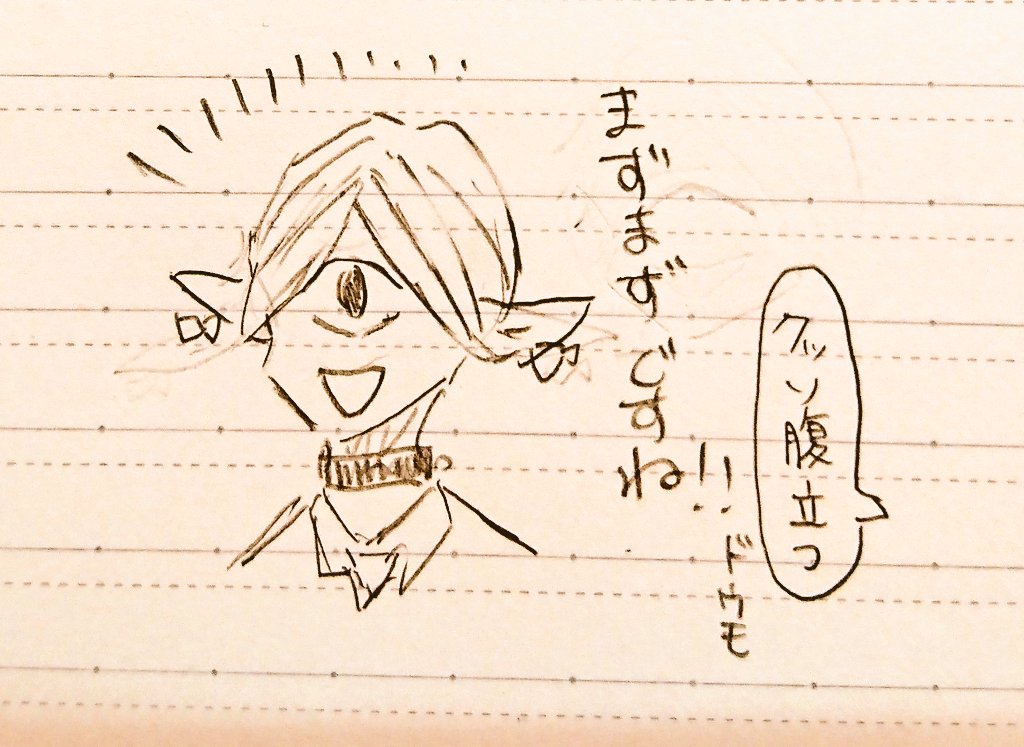 クッソ腹立つ
まずまずですね!!
ドウモ